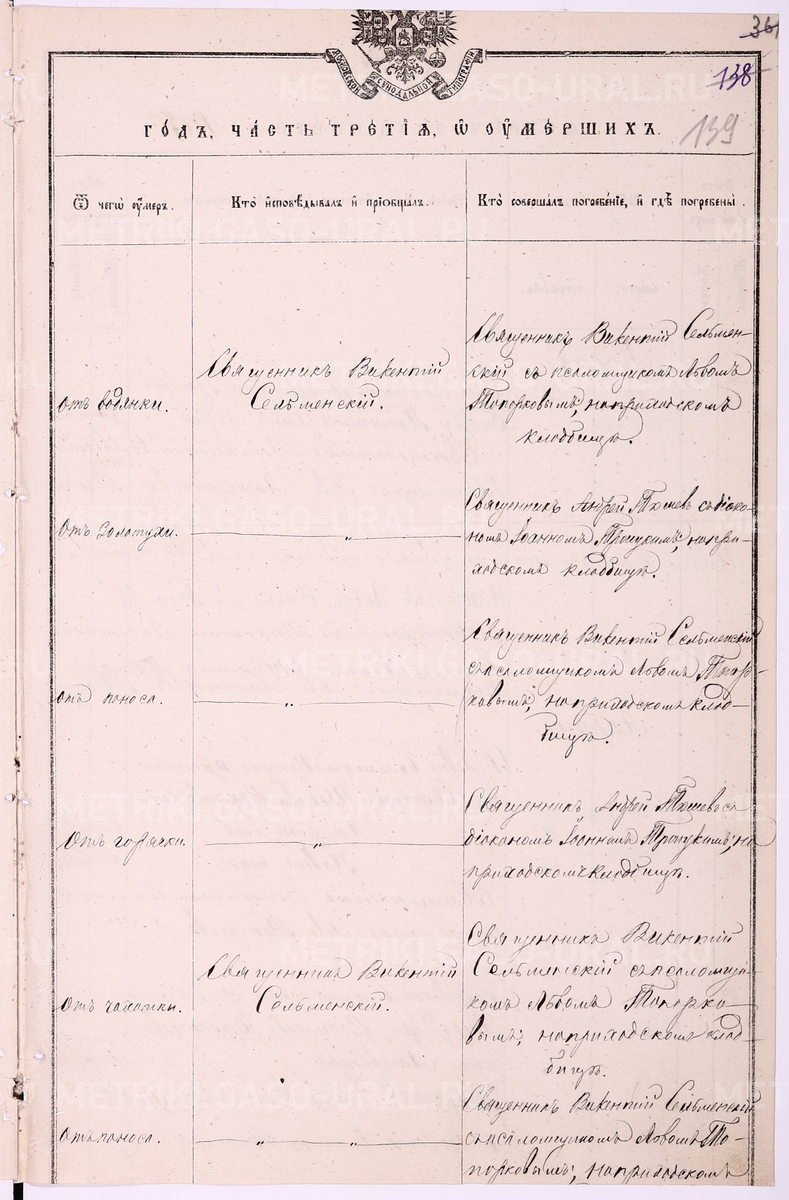 361
138
139
МОСКОВСКОЙ СѴНОДАЛЬНОЙ ТИПОГРАФІИ
ГО́ДЪ, ЧА́СТЬ ТРЕ́ТІѦ, Ѽ ОУ҆МЕ́РШИХЪ.
Ѿ чегѡ̀ оу҆́меръ.
Кто̀ и҆сповѣ́дывалъ и҆ прїѡбща́лъ.
Кто̀ соверша́лъ погребе́нїе, и҆ гдѣ̀ погребены̀.
отъ водянки.
Священникъ Викентій
Сельменскій.
Священникъ Викентій Сельмен-
скій съ псаломщикомъ Львомъ
Топорковымъ; на приходскомъ
кладбищѣ.
отъ золотухи.
„
Священникъ Андрей Ташевъ съ діако-
номъ Іоанномъ Троицкимъ; на при-
ходскомъ кладбищѣ.
отъ поноса.
„
Священникъ Викентій Сельменскій
съ псаломщикомъ Львомъ Топор-
ковымъ; на приходскомъ клад-
бищѣ.
отъ горячки.
„
Священникъ Андрей Ташевъ съ
діакономъ Іоанномъ Троицкимъ; на
приходскомъ кладбищѣ.
отъ чахотки.
Священникъ Викентій
Сельменскій.
Священникъ Викентій
Сельменскій съ псаломщи-
комъ Львомъ Топорко-
вымъ; на приходскомъ клад-
бищѣ.
отъ поноса.
„ „
Священникъ Викентій Сельменскій
съ псаломщикомъ Львомъ То-
порковымъ; на приходскомъ